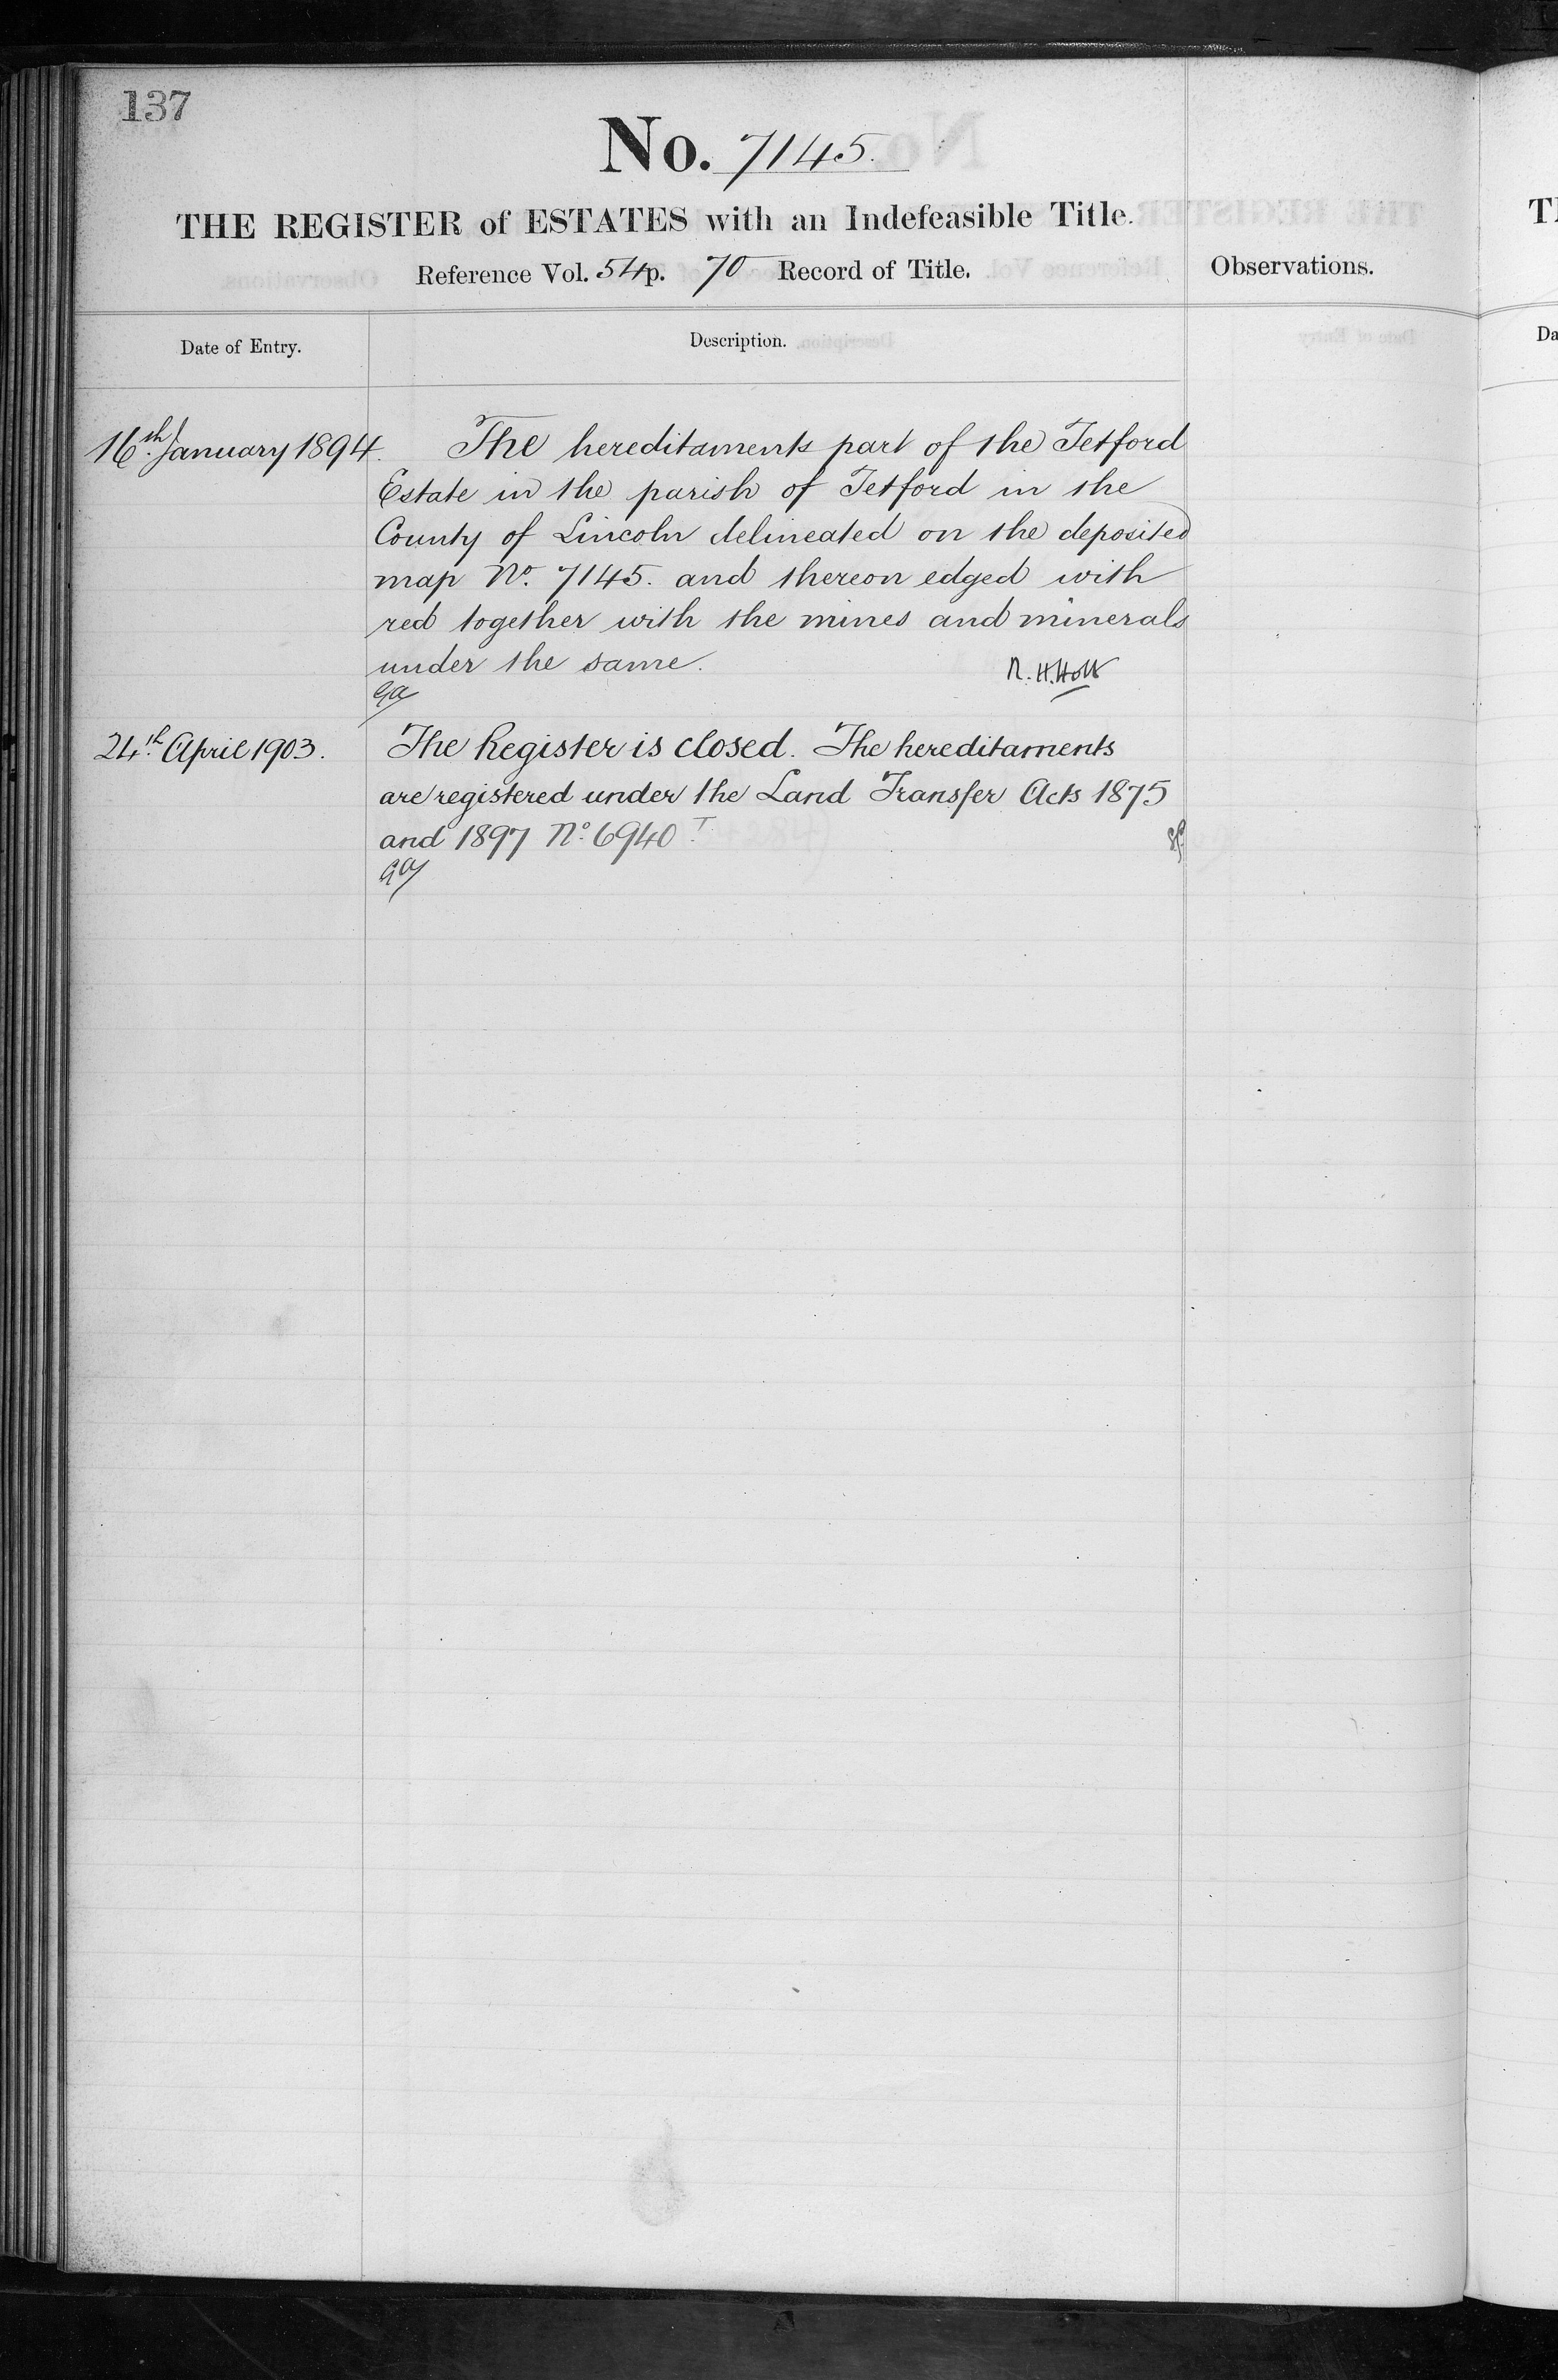 137
No. 7145.
THE REGISTER of ESTATES with an Indefeasible Title.
Reference Vol. 54 p. 70 Record of Title.
Observations.
Date of Entry.
Description.
16th January 1894.
The hereditaments part of the Tetford
Estate in the parish of Tetford in the
County of Lincoln delineated on the deposited
map No. 7145. and thereon edged with
red together with the mines and minerals
under the same.
R. H. Holt
24th April 1903.
The Register is closed. The hereditaments
are registered under the Land Transfer Acts 1875
and 1897 No. 6940